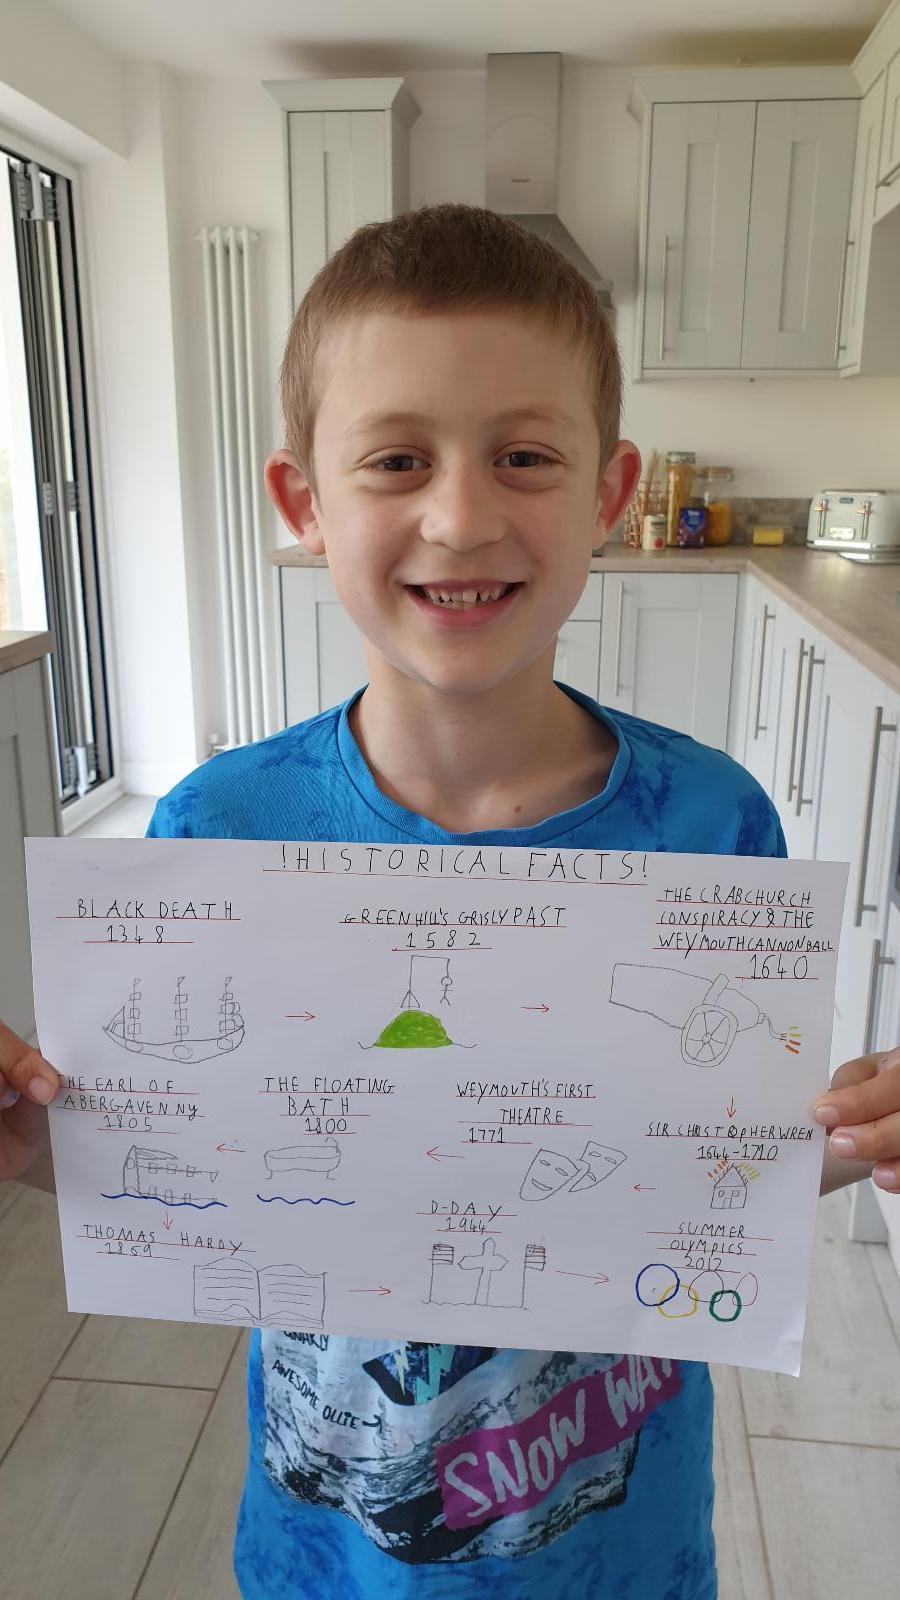 !HISTORICAL FACTS!
BLACK DEATH
1348
GREENHILL'S GRISLY PAST
1582
THE CRABCHURCH
CONSPIRACY & THE
WEYMOUTH CANNONBALL
1640
SIR CHRISTOPHER WREN
1644-1710
WEYMOUTH'S FIRST
THEATRE
1771
THE FLOATING
BATH
1800
THE EARL OF
ABERGAVENNY
1805
THOMAS HARDY
1869
D-DAY
1944
SUMMER
OLYMPICS
2012
GNARLY
AWESOME OLLIE
SNOW WAY